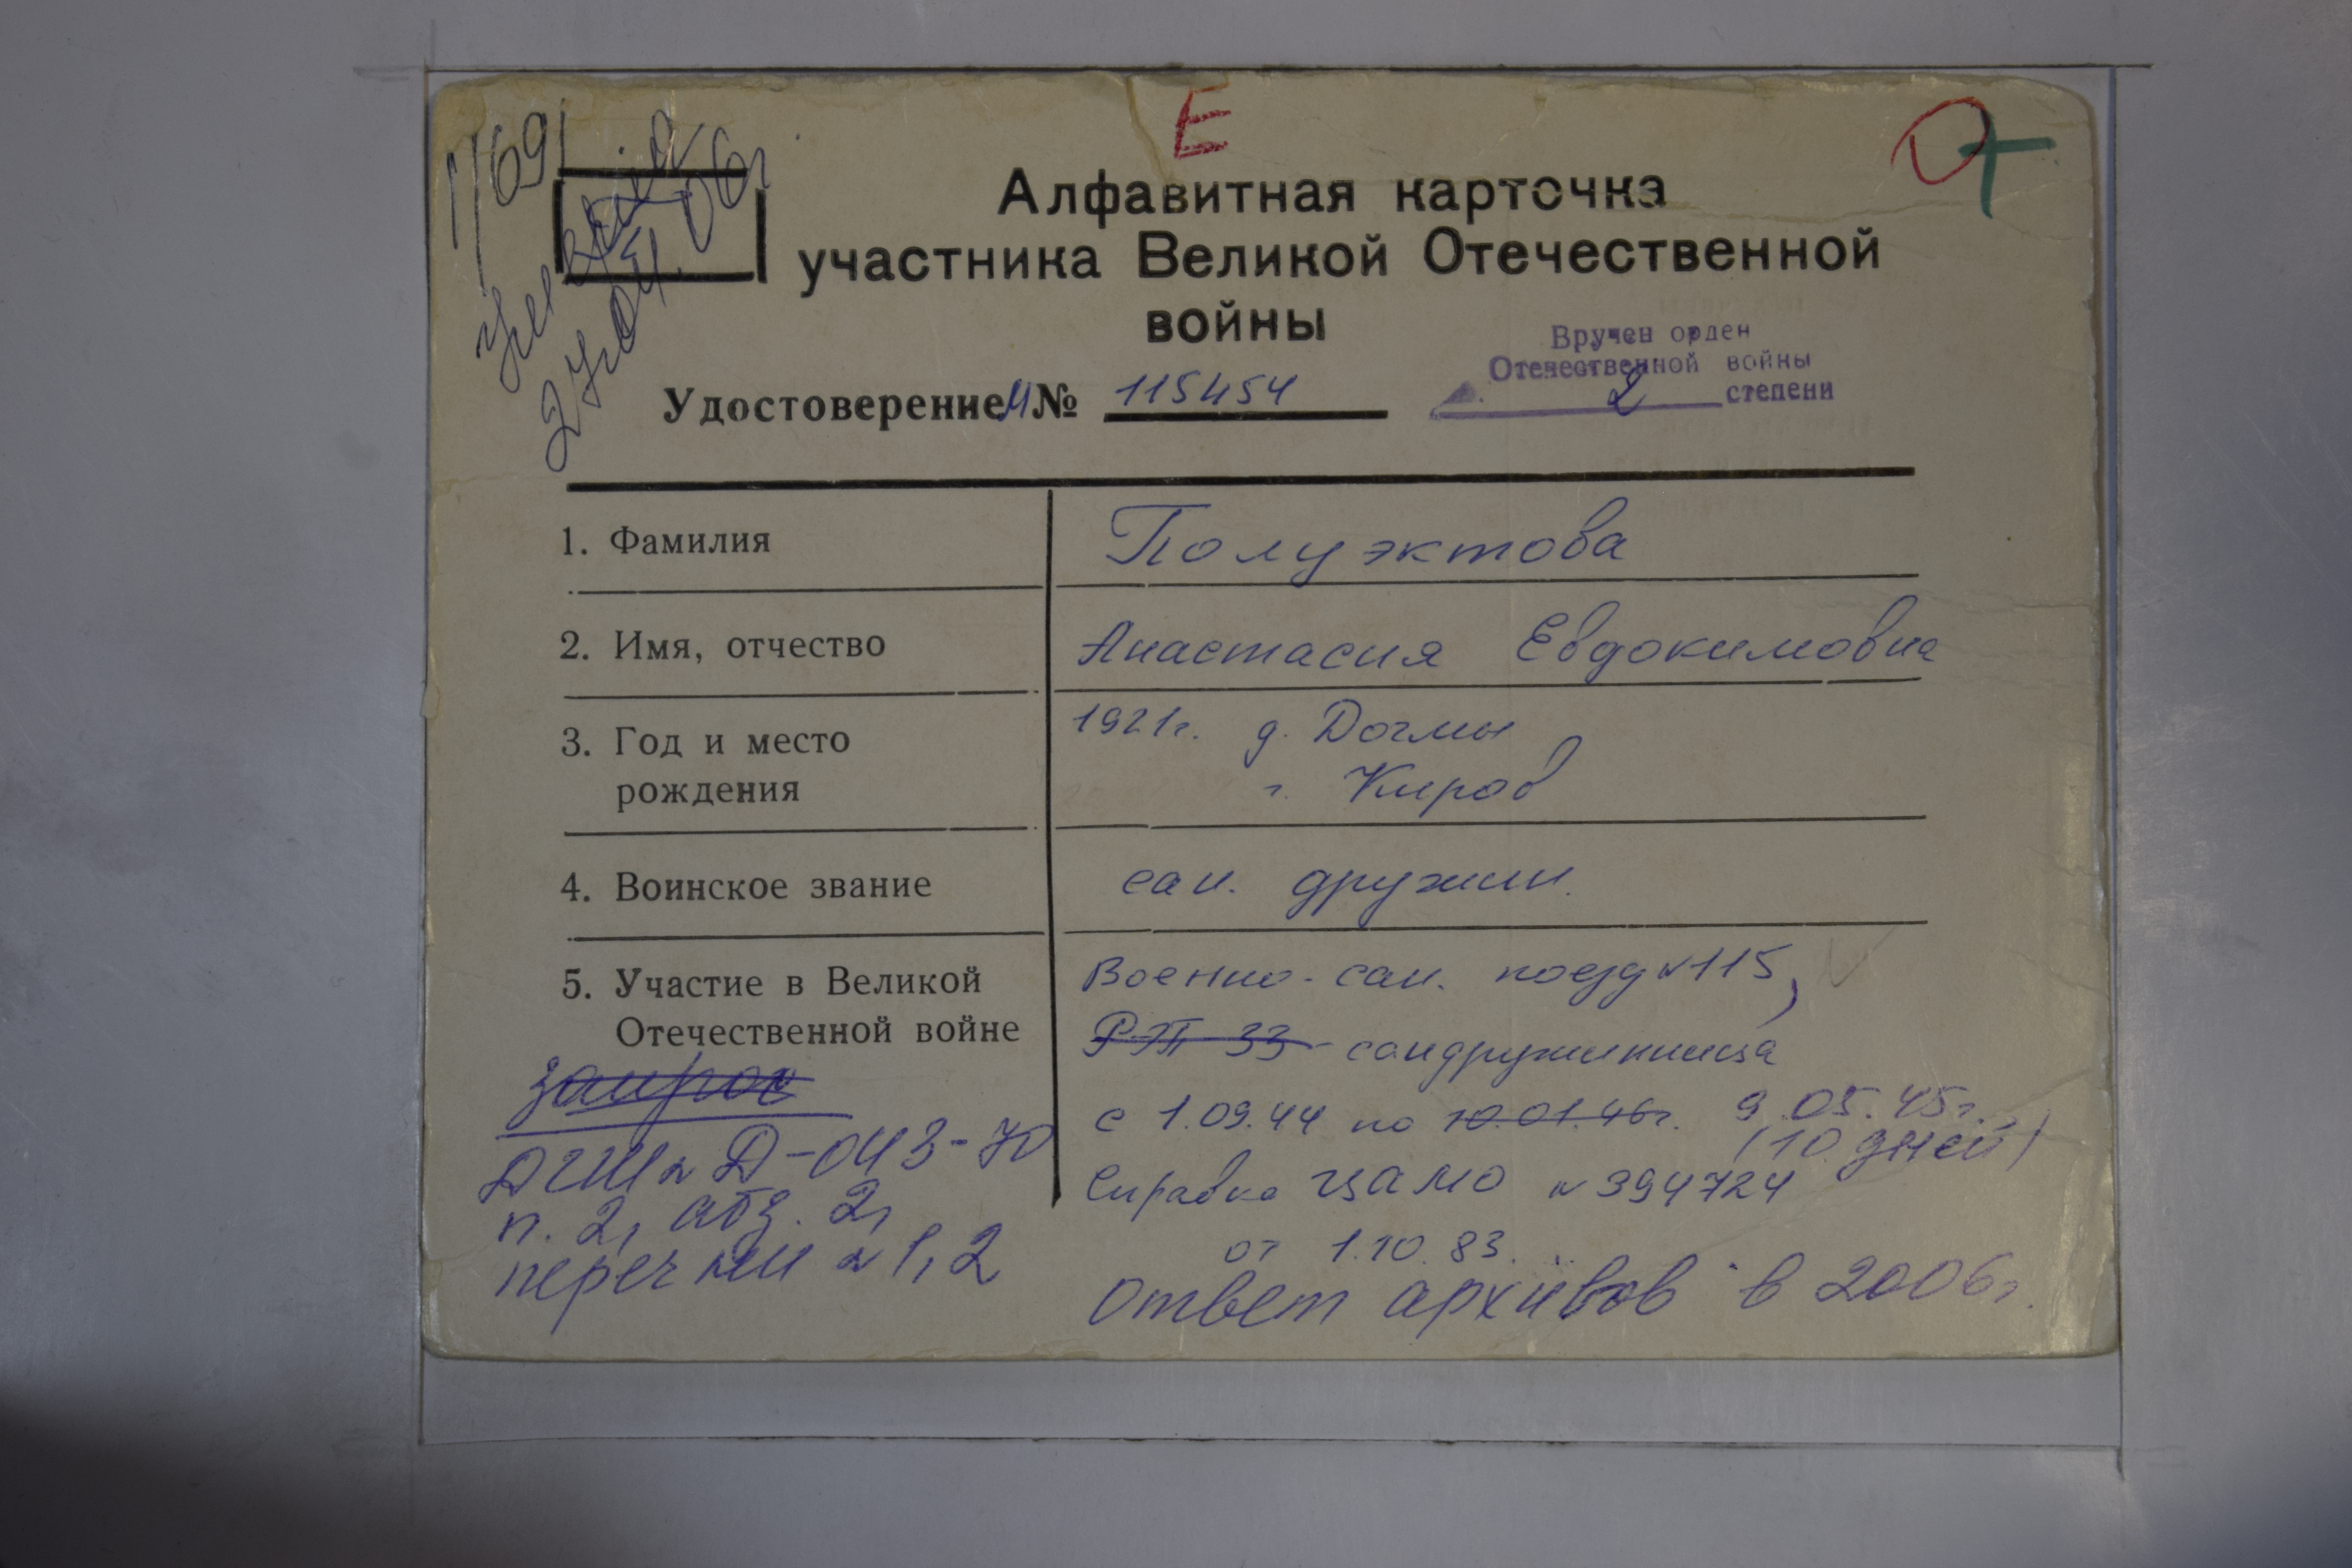 Е
1/691
27.04.06г.
Алфавитная карточка
участника Великой Отечественной
войны
Вручен орден
Отечественной войны
2 степени
Удостоверение И № 115454
1. Фамилия Полуэктова
2. Имя, отчество Анастасия Евдокимовна
3. Год и место 1921г. д. Догмы
рождения г. Киров
4. Воинское звание сан. дружин.
5. Участие в Великой Военно-сан. поезд №115,
Отечественной войне РЭП-33 - сандружинница
запрос
с 1.09.44 по 10.01.46г. 9.05.45г.
(10 дней)
ДГШ № Д-043-70
Справка ЦАМО №394724
п. 2, абз. 2,
от 1.10.83.
перечни № 1, 2
Ответ архивов в 2006г.